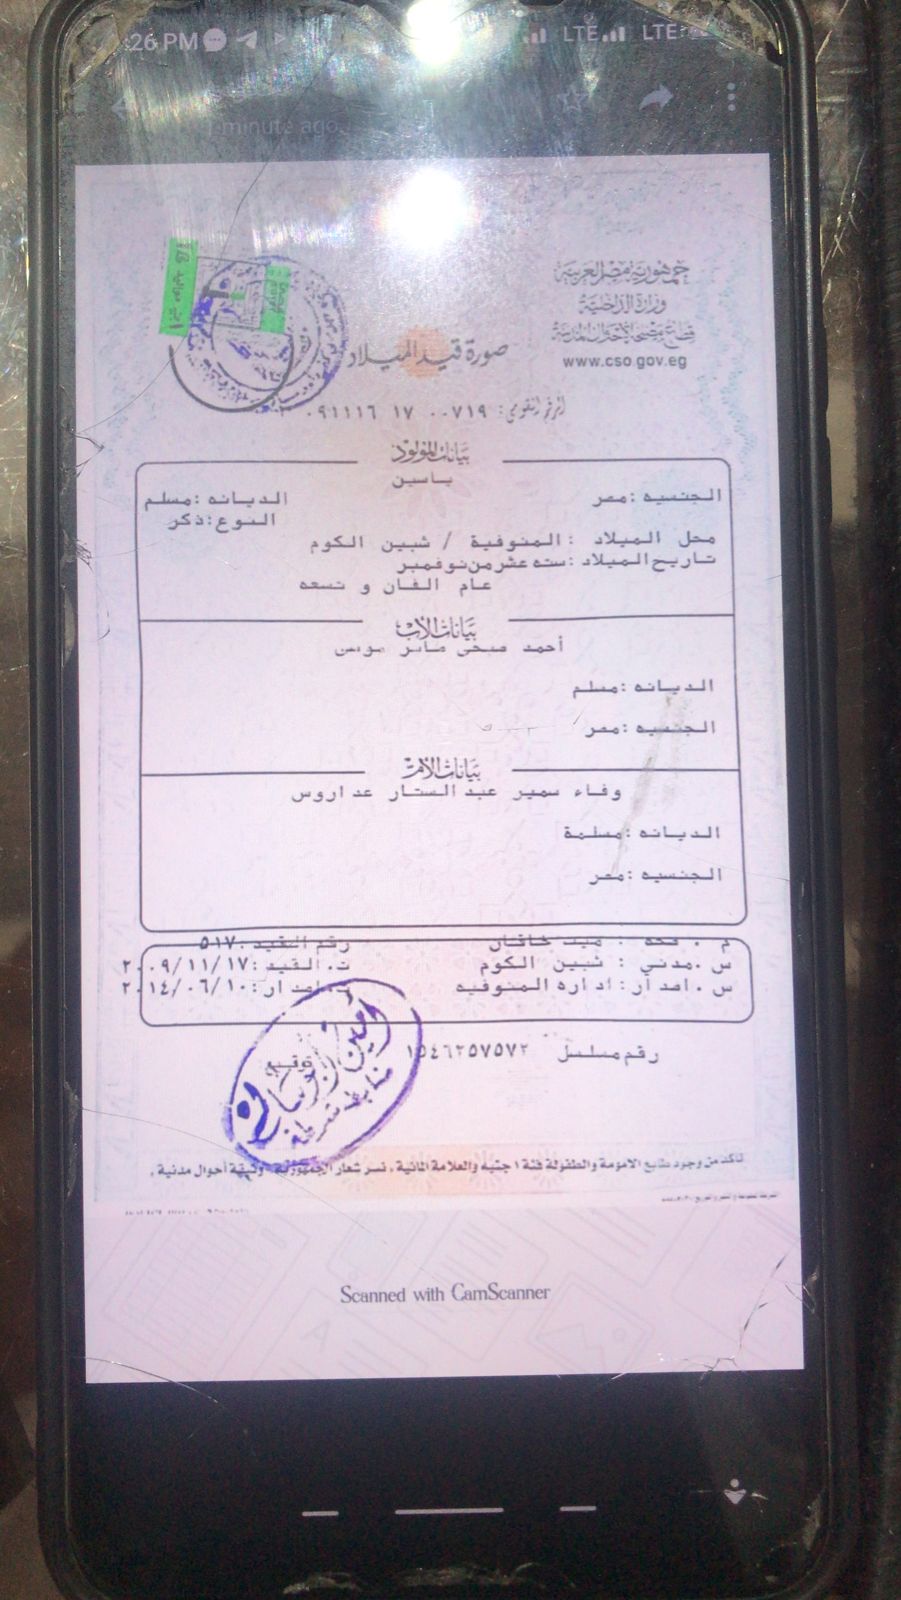 26 PM
LTE LTE
minute ago
جمهورية مصر العربية
وزارة الداخلية
قطاع مصلحة الأحوال المدنية
www.cso.gov.eg
صورة قيد الميلاد
الرقم القومي: ٠٩١١١٦ ١٧ ٠٠٧١٩
بيانات المولود
ياسين
الجنسيه :مصر
الديانه :مسلم
النوع :ذكر
محل الميلاد : المنوفية / شبين الكوم
تاريخ الميلاد :سته عشر من نوفمبر
عام الفان و تسعه
بيانات الأب
أحمد صبحى صابر
الديانه :مسلم
الجنسيه :مصر
بيانات الأم
وفاء سمير عبد الستار عداروس
الديانه :مسلمة
الجنسيه :مصر
م . صحه : ميت خاقان رقم القيد :٥١٧
س .مدني : شبين الكوم ت. القيد :٢٠٠٩/١١/١٧
س . اصدار : اداره المنوفيه ت. اصدار :٢٠١٤/٠٦/١٠
رقم مسلسل ١٥٤٦٢٥٧٥٧٢
توقيع
ضابط شرطة
تأكد من وجود طابع الامومة والطفولة فئة ١ جنيه والعلامة المائية ، نسر شعار الجمهورية ، وثيقة أحوال مدنية .
Scanned with CamScanner